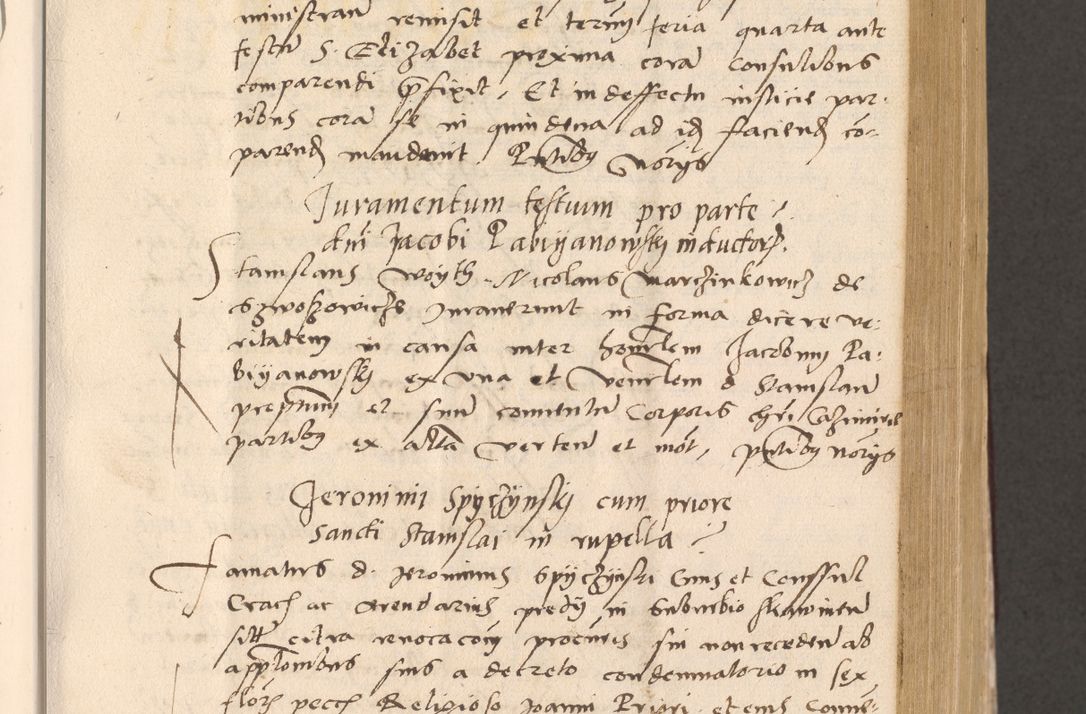 ministran remisit et termin feria quarta ante
festu S. Elizabet proxima cora Consulibus
comparendi p̃fixit, Et in deffectu insticie par-
tibus cora se in quindena ad id faciend co-
parend mandavit. P̃ntibus Notorijs
Juramentum testium pro parte
dni Jacobi Pabiyanowsky inductorz.
Stanislaus Woyth. Nicolaus Marczinkowicz de
Szwoszowicze Juraverunt in forma dicere ve-
ritatem in causa inter honlem Jacobum Pa-
biyanowsky ex una et Venlem d. Stanislau
prepstum et suu Conventu Corporis chri Cazimirie
partibus ex altera verten et mot, p̃ntibus Notorijs
Jeronimi Spyczynsky cum priore
Sancti Stanislai in rupella
Famatus d. Jeronimus Spyczynski Civis et Conssul
Crac ac Arendarius predij in Suburbio
sitt citra revocacom procuris sui non receden ab
applonibus suis a decreto condemnatorio in sex
florz pecc Religioso Joanni Priori et eius Conve-